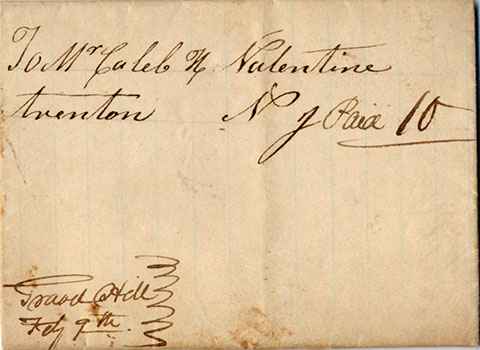 To Mr Caleb H Valentine
trenton N J Paid 10
Hill
Feby 9th.